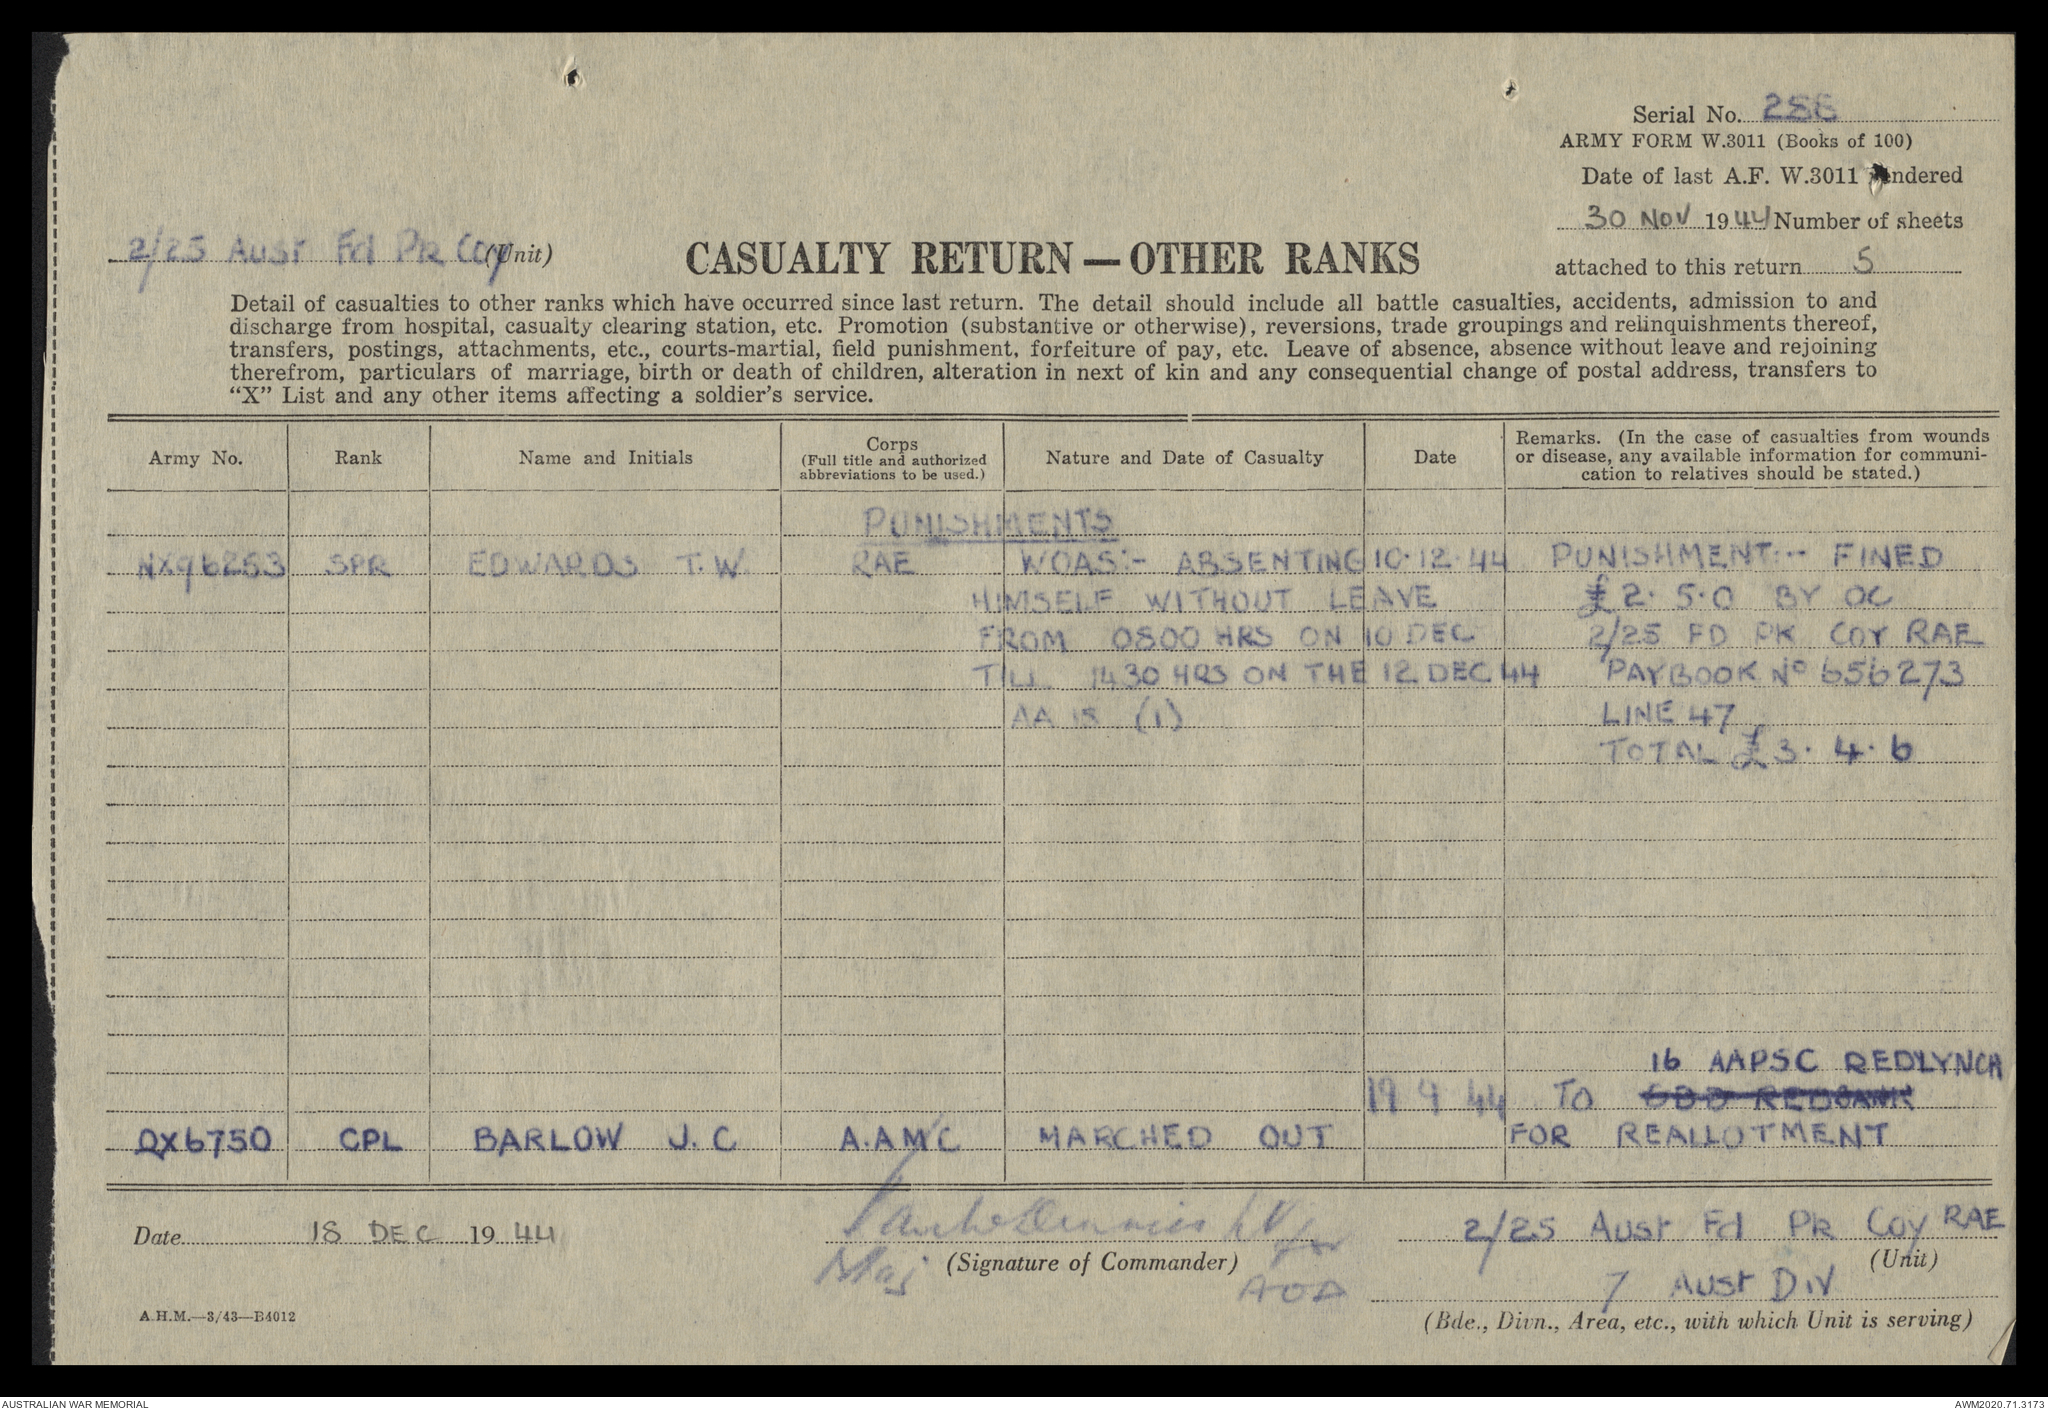 Serial No. 288
ARMY FORM W.3011 (Books of 100)
Date of last A.F. W.3011 rendered
30 NOV 1944 Number of sheets
attached to this return 5
2/25 Aust Fd Pk Coy (Unit)
CASUALTY RETURN — OTHER RANKS
Detail of casualties to other ranks which have occurred since last return. The detail should include all battle casualties, accidents, admission to and
discharge from hospital, casualty clearing station, etc. Promotion (substantive or otherwise), reversions, trade groupings and relinquishments thereof,
transfers, postings, attachments, etc., courts-martial, field punishment, forfeiture of pay, etc. Leave of absence, absence without leave and rejoining
therefrom, particulars of marriage, birth or death of children, alteration in next of kin and any consequential change of postal address, transfers to
“X” List and any other items affecting a soldier’s service.
Army No. Rank Name and Initials Corps (Full title and authorized abbreviations to be used.) Nature and Date of Casualty Date Remarks. (In the case of casualties from wounds or disease, any available information for communi- cation to relatives should be stated.)
PUNISHMENTS
NX96253 SPR EDWARDS T.W. RAE WOAS:- ABSENTING 10.12.44 PUNISHMENT:- FINED
HIMSELF WITHOUT LEAVE £2.5.0 BY OC
FROM 0800 HRS ON 10 DEC 2/25 FD PK COY RAE
TILL 1430 HRS ON THE 12 DEC 44 PAYBOOK No 656273
AA 15 (1) LINE 47
TOTAL £3.4.6
16 AAPSC REDLYNCH
19 9 44 TO GBD REDBANK
QX6750 CPL BARLOW J.C A.AM.C MARCHED OUT FOR REALLOTMENT
Date 18 DEC 1944
Maj (Signature of Commander)
2/25 Aust Fd Pk Coy RAE
(Unit)
7 Aust Div
(Bde., Divn., Area, etc., with which Unit is serving)
A.H.M.—3/43—B4012
AUSTRALIAN WAR MEMORIAL
AWM2020.71.3173